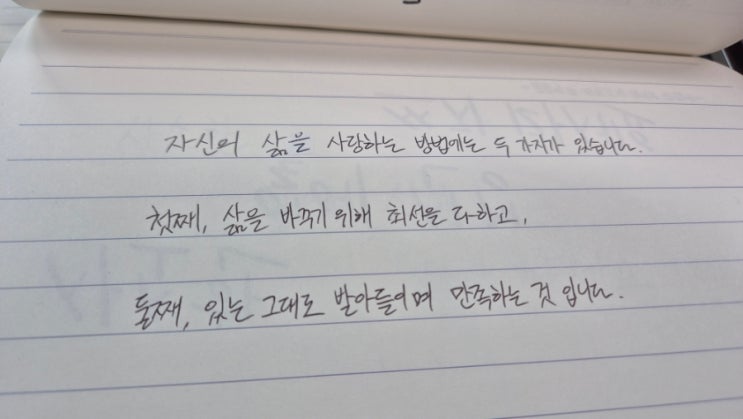 자신의 삶을 사랑하는 방법에는 두 가지가 있습니다.
첫째, 삶을 바꾸기 위해 최선을 다하고,
둘째, 있는 그대로 받아들이며 만족하는 것 입니다.